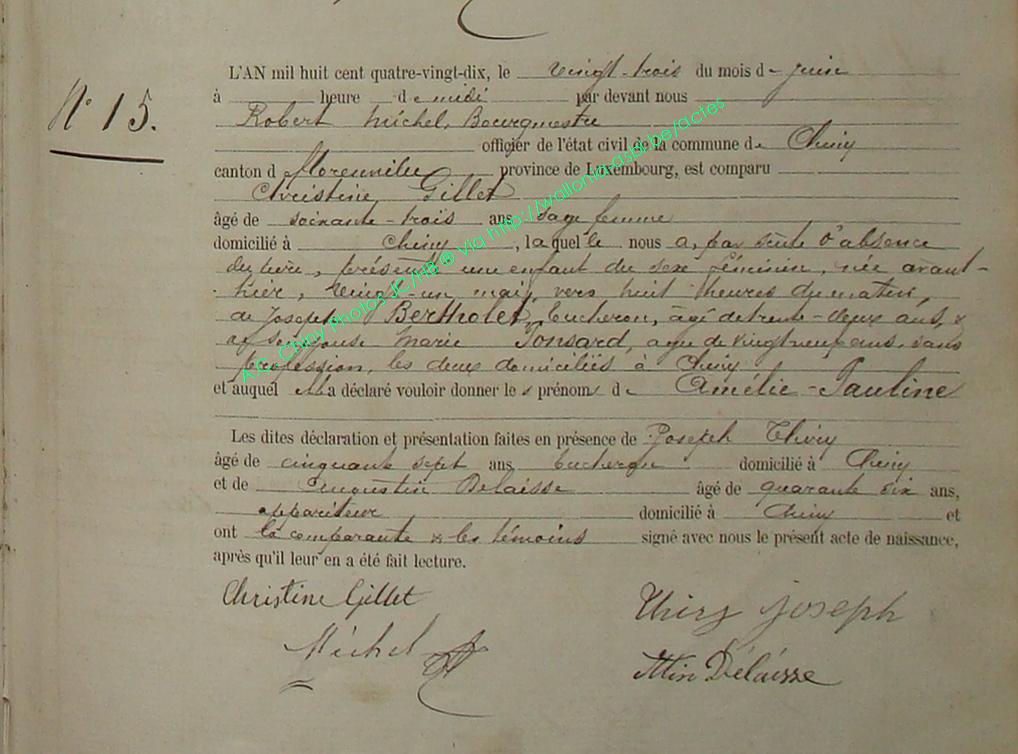 L'AN mil huit cent quatre-vingt-dix, le vingt-trois du mois de juin
N° 15.
à heure de midi par devant nous
Robert Michel, Bourgmestre
officier de l'état civil de la commune de Chiny
canton d florenville province de Luxembourg, est comparu
Christine Gillet
âgé de soixante-trois ans sage femme
domicilié à Chiny, laquelle nous a, par suite d'absence
du père, présenté une enfant du sexe féminin, née avant-
hier, vingt-un mai, vers huit heures du matin,
de Joseph Bertholet, bucheron, âgé de trente-deux ans, &
de son épouse Marie Ponsard, agée de vingt neuf ans, sans
profession, les deux domiciliés à Chiny
et auquel elle a déclaré vouloir donner les prénoms de Amélie-Pauline
Les dites déclaration et présentation faites en présence de Joseph Thiry
âgé de cinquante sept ans bucheron domicilié à Chiny
et de Augustin Delaisse âgé de quarante six ans,
appariteur domicilié à Chiny et
ont la comparante & les témoins signé avec nous le présent acte de naissance,
après qu'il leur en a été fait lecture.
Christine Gillet
Thiry Joseph
Michel R
Delaisse
A.C. Chiny Photos JC/HB ® via http://wallonia-asbl.be/actes